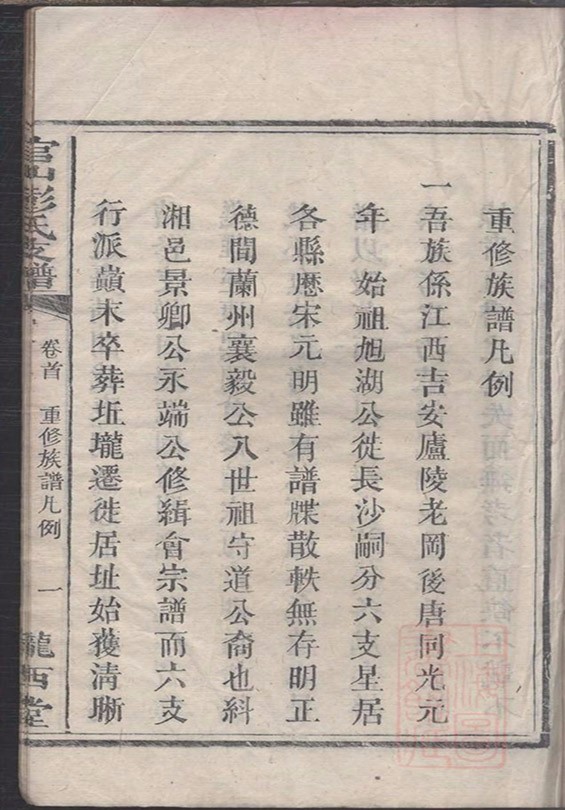 重修族譜凡例
一吾族係江西吉安廬陵老岡後唐同光元
年 始祖旭湖公徙長沙嗣分六支星居
各縣歷宋元明雖有譜牒散軼無存明正
德間蘭州襄毅公八世祖守道公裔也糾
湘邑景卿公永端公修緝會宗譜而六支
行派巔末卒葬坵壠遷徙居址始獲清晰
官山彭氏支譜
卷首 重修族譜凡例 一
隴西堂